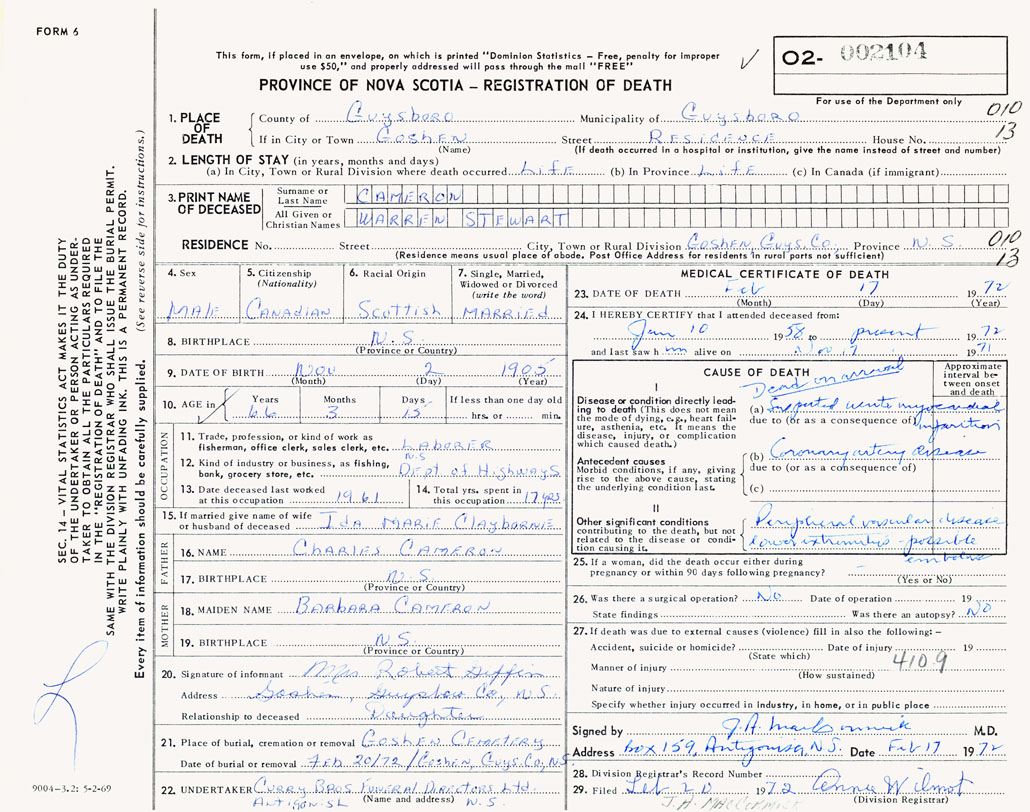 FORM 6
This form, if placed in an envelope, on which is printed "Dominion Statistics – Free, penalty for improper
use $50," and properly addressed will pass through the mail "FREE"
PROVINCE OF NOVA SCOTIA – REGISTRATION OF DEATH
O2- 002104
For use of the Department only
010
13
SEC. 14 – VITAL STATISTICS ACT MAKES IT THE DUTY
OF THE UNDERTAKER OR PERSON ACTING AS UNDER-
TAKER TO OBTAIN ALL THE PARTICULARS REQUIRED
IN THE "REGISTRATION OF DEATH" AND TO FILE THE
SAME WITH THE DIVISION REGISTRAR WHO SHALL ISSUE THE BURIAL PERMIT.
WRITE PLAINLY WITH UNFADING INK. THIS IS A PERMANENT RECORD.
Every item of information should be carefully supplied. (See reverse side for instructions.)
1. PLACE OF DEATH
County of Guysboro Municipality of Guysboro
If in City or Town Goshen Street Residence House No.
(Name) (If death occurred in a hospital or institution, give the name instead of street and number)
2. LENGTH OF STAY (in years, months and days)
(a) In City, Town or Rural Division where death occurred Life (b) In Province Life (c) In Canada (if immigrant)
3. PRINT NAME OF DECEASED
Surname or Last Name CAMERON
All Given or Christian Names WARREN STEWART
RESIDENCE No. Street City, Town or Rural Division Goshen, Guys. Co., Province N.S.
(Residence means usual place of abode. Post Office Address for residents in rural parts not sufficient)
010
13
4. Sex Male
5. Citizenship (Nationality) Canadian
6. Racial Origin Scottish
7. Single, Married, Widowed or Divorced (write the word) Married
8. BIRTHPLACE N.S.
(Province or Country)
9. DATE OF BIRTH Nov 2 1905
(Month) (Day) (Year)
10. AGE in Years 66 Months 3 Days 15 If less than one day old
hrs. or min.
OCCUPATION
11. Trade, profession, or kind of work as
fisherman, office clerk, sales clerk, etc. Laborer
12. Kind of industry or business, as fishing,
bank, grocery store, etc. N.S. Dept of Highways
13. Date deceased last worked
at this occupation 1961
14. Total yrs. spent in
this occupation 17 yrs.
15. If married give name of wife
or husband of deceased Ida Marie Claybornie
FATHER
16. NAME Charles Cameron
17. BIRTHPLACE N.S.
(Province or Country)
MOTHER
18. MAIDEN NAME Barbara Cameron
19. BIRTHPLACE N.S.
(Province or Country)
20. Signature of informant Mrs Robert Giffin
Address Goshen, Guysboro Co., N.S.
Relationship to deceased Daughter
21. Place of burial, cremation or removal Goshen Cemetery
Date of burial or removal Feb 20/72 / Goshen, Guys. Co, N.S.
22. UNDERTAKER Curry Bros Funeral Directors Ltd.
(Name and address)
Antigonish N.S.
9004-3.2: 5-2-69
MEDICAL CERTIFICATE OF DEATH
23. DATE OF DEATH Feb 17 1972
(Month) (Day) (Year)
24. I HEREBY CERTIFY that I attended deceased from:
Jan 10 1958 to present 1972
and last saw him alive on Nov 17 1971
CAUSE OF DEATH
Approximate interval between onset and death
I
Dead on arrival
Disease or condition directly lead-
ing to death (This does not mean
the mode of dying, e.g., heart fail-
ure, asthenia, etc. It means the
disease, injury, or complication
which caused death.)
(a) Suspected acute myocardial
due to (or as a consequence of) infarction
Antecedent causes
Morbid conditions, if any, giving
rise to the above cause, stating
the underlying condition last.
(b) Coronary artery disease
due to (or as a consequence of)
(c)
II
Other significant conditions
contributing to the death, but not
related to the disease or condi-
tion causing it.
Peripheral vascular disease
lower extremities - possible
embolus
25. If a woman, did the death occur either during
pregnancy or within 90 days following pregnancy?
(Yes or No)
26. Was there a surgical operation? No Date of operation 19
State findings Was there an autopsy? No
27. If death was due to external causes (violence) fill in also the following: –
Accident, suicide or homicide? Date of injury 19
(State which)
4109
Manner of injury
(How sustained)
Nature of injury
Specify whether injury occurred in Industry, in home, or in public place
Signed by J.A. MacCormick M.D.
Address Box 159, Antigonish, N.S. Date Feb 17 1972
28. Division Registrar's Record Number
29. Filed Feb 20 1972 Annie Wilmot
(Division Registrar)
J.A. MacCormick